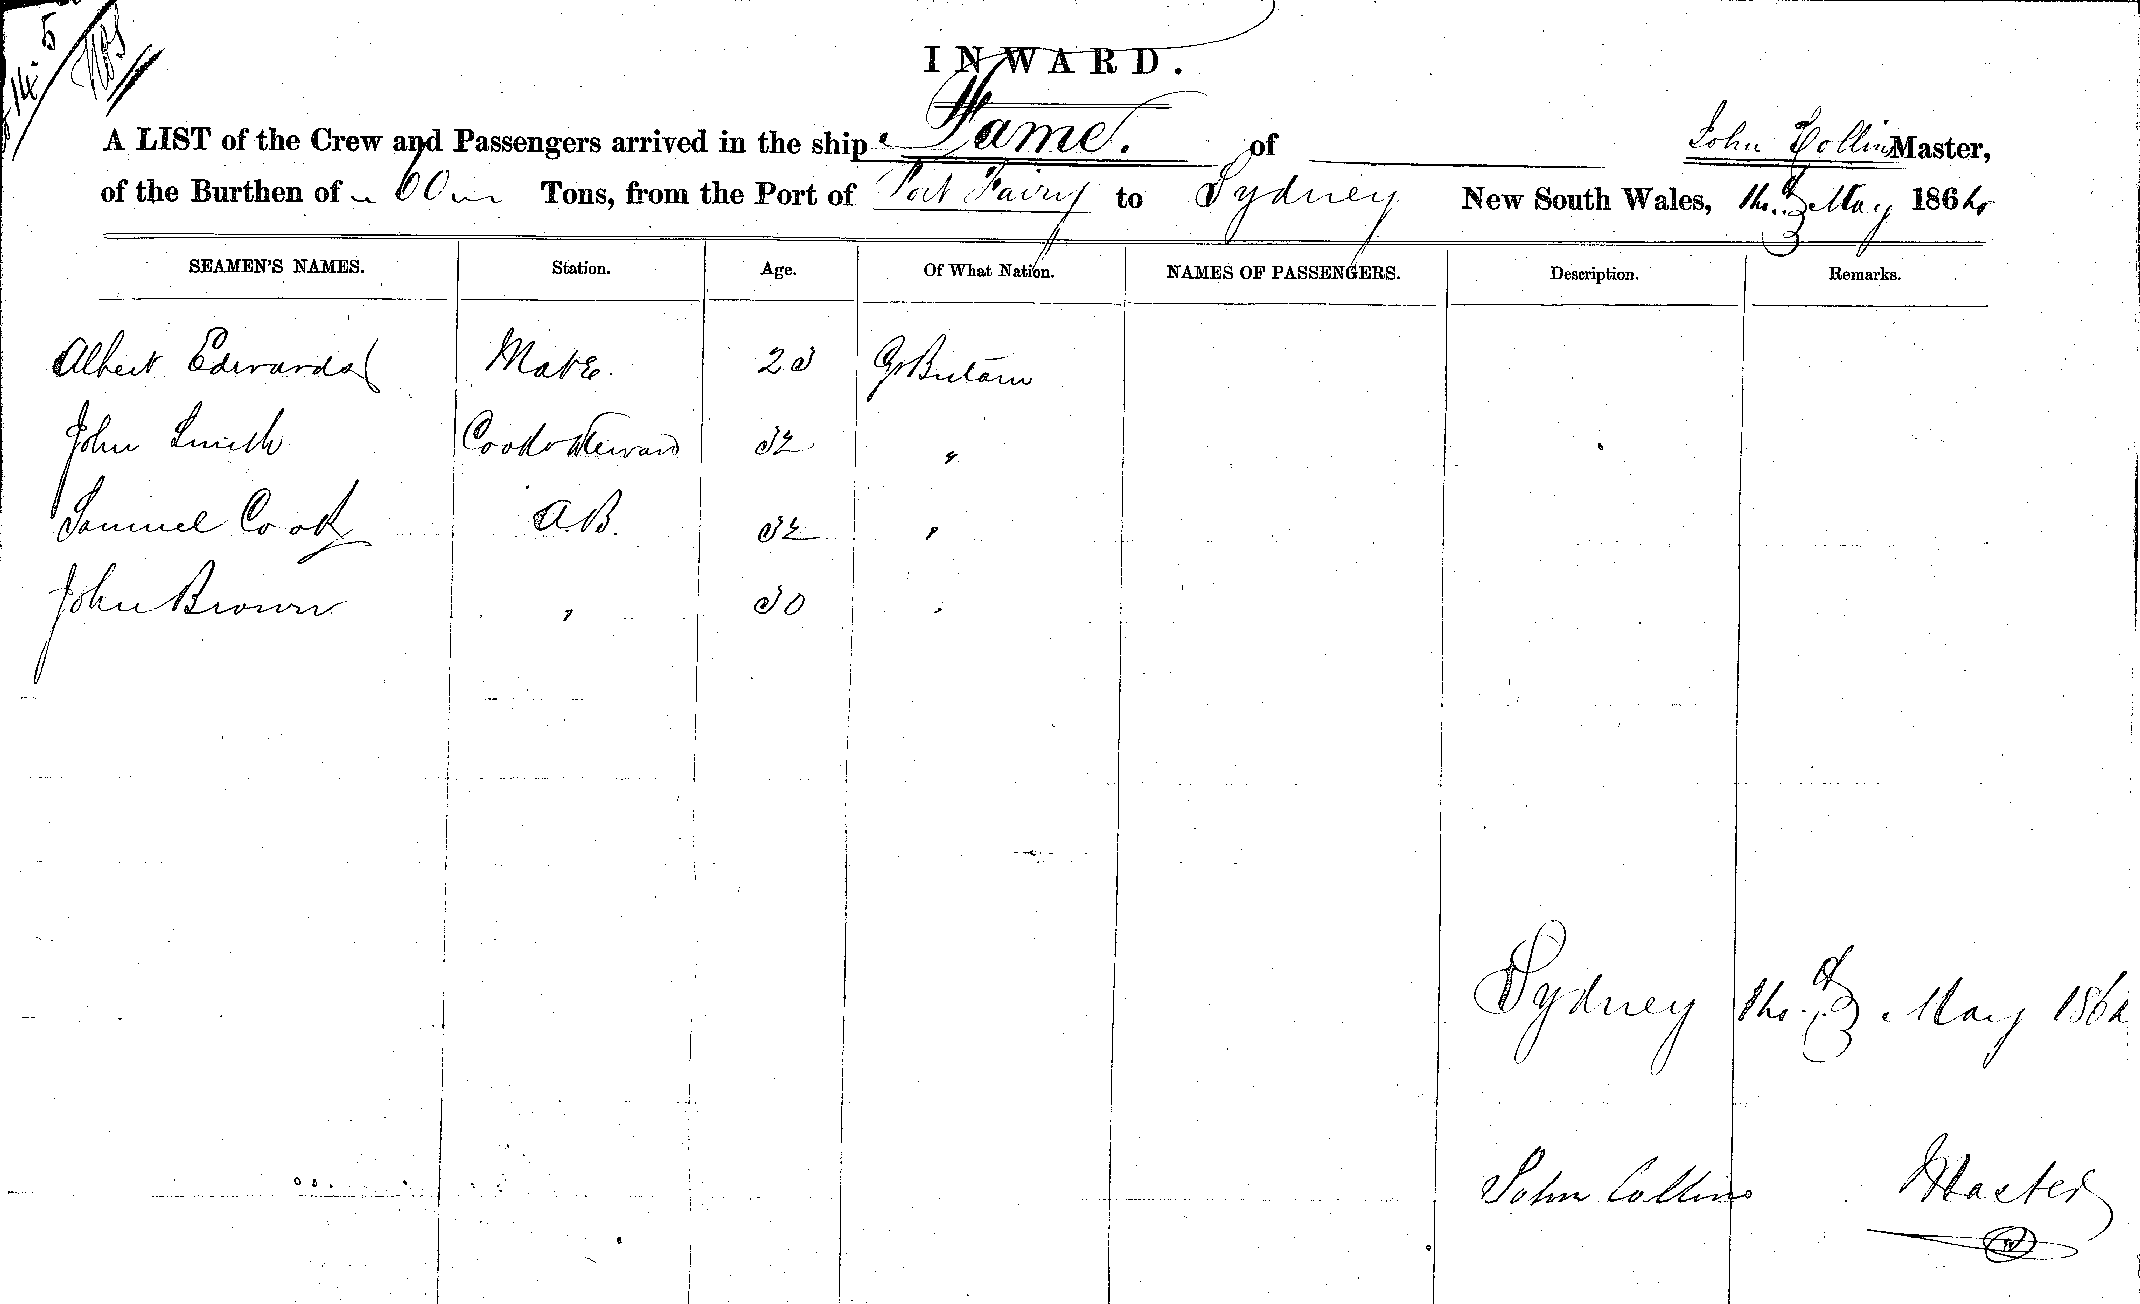 14. 5
INWARD.
A LIST of the Crew and Passengers arrived in the ship Fame. of John Collins Master,
of the Burthen of 60 Tons, from the Port of Port Fairy to Sydney New South Wales, May 186
SEAMEN'S NAMES. Station. Age. Of What Nation. NAMES OF PASSENGERS. Description. Remarks.
Albert Edwards Mate. 23 Gt Britain
John Smith Cook & Steward 32 "
Samuel Cook A.B. 32 "
John Brown " 30 "
Sydney May 186
John Collins Master